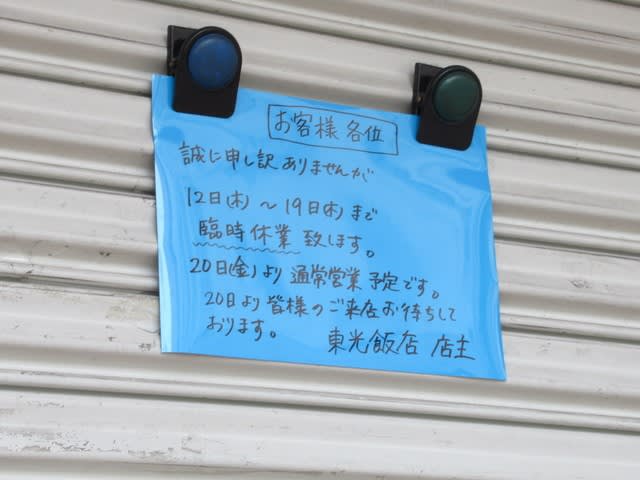 お客様各位
誠に申し訳ありませんが
12日(木)～19日(木)まで
臨時休業致します。
20日(金)より通常営業予定です。
20日より皆様のご来店お待ちして
おります。
東光飯店 店主